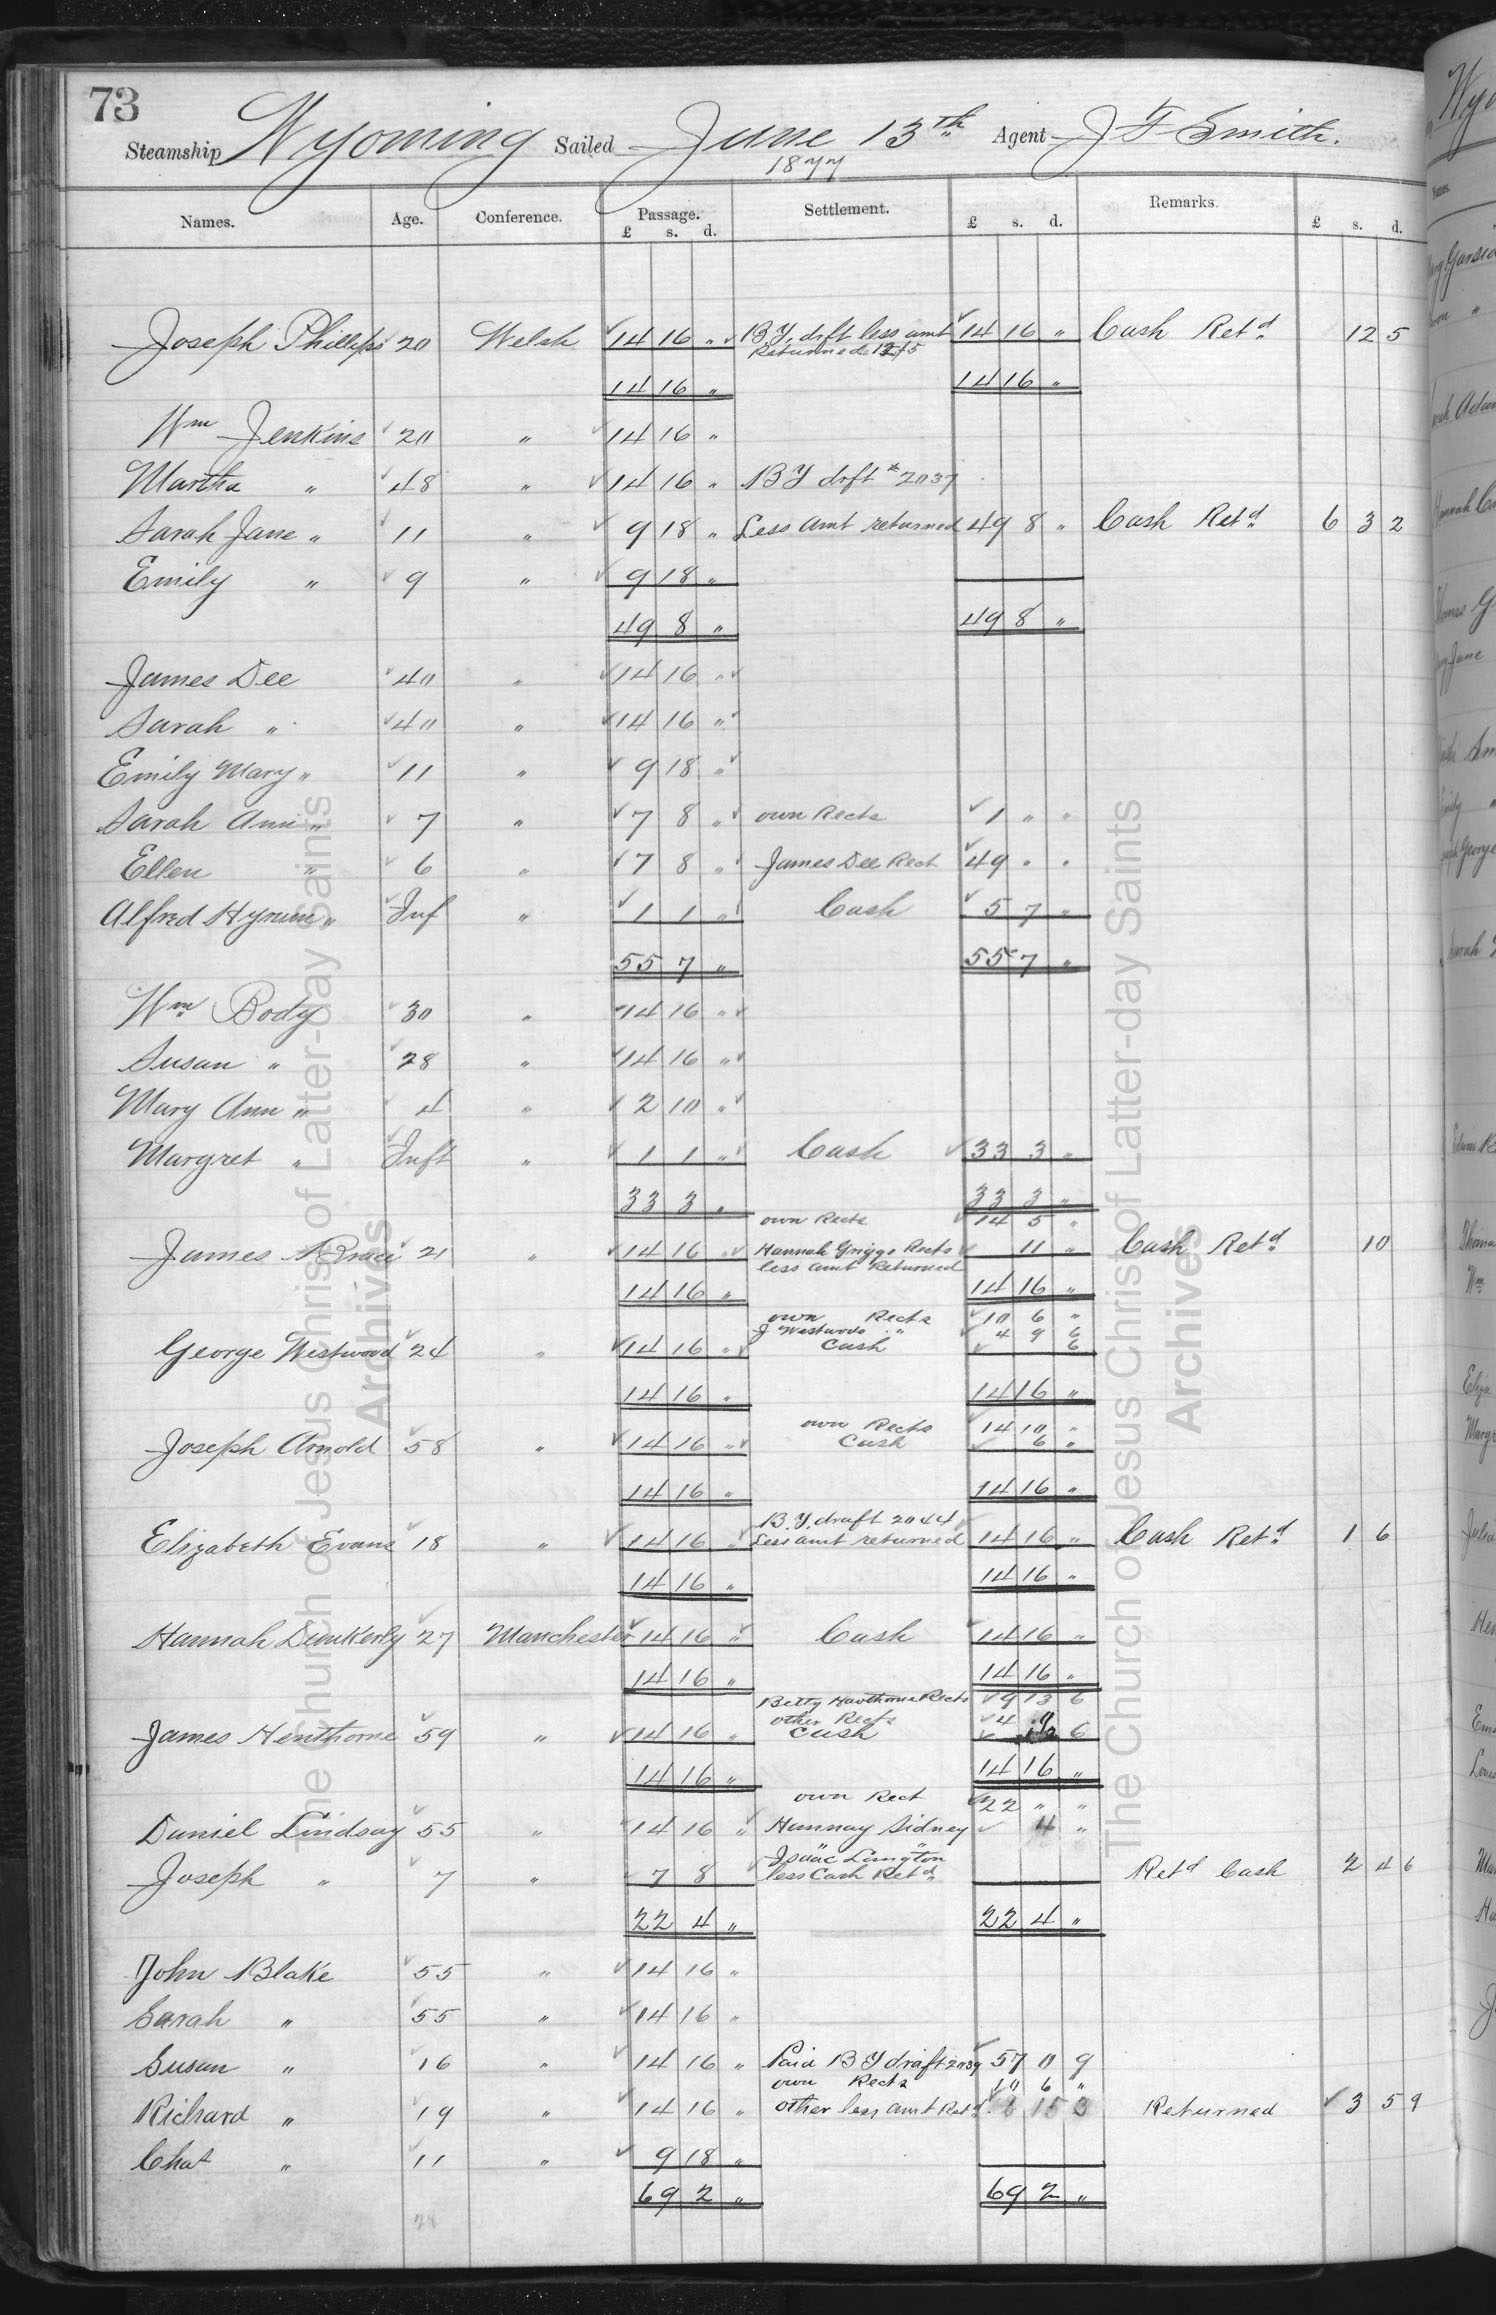 73
Steamship Wyoming Sailed June 13th Agent J F Smith.
1877
Names. Age. Conference. Passage. Settlement. Remarks.
£ s. d. £ s. d. £ s. d.
Joseph Phillips 20 Welsh 14 16 " B.Y. drft less amt 14 16 " Cash Retd 12 5
Returned 12/5
14 16 " 14 16 "
Wm Jenkins 20 " 14 16 "
Martha " 48 " 14 16 " B Y drft # 2037
Sarah Jane " 11 " 9 18 " Less Amt returned 49 8 " Cash Retd 6 3 2
Emily " 9 " 9 18 "
49 8 " 49 8 "
James Dee 40 " 14 16 "
Sarah " 40 " 14 16 "
Emily Mary " 11 " 9 18 "
Sarah Ann " 7 " 7 8 " own Rects 1 " "
Ellen " 6 " 7 8 " James Dee Rect 49 " "
Alfred Hyrum " Inf " 1 1 " Cash 5 7 "
55 7 " 55 7 "
Wm Body 30 " 14 16 "
Susan " 28 " 14 16 "
Mary Ann " 4 " 2 10 "
Margret " Inft " 1 1 " Cash 33 3 "
33 3 " 33 3 "
own Rects 14 5 "
James 21 " 14 16 " Hannah Griggs Rects 11 " Cash Retd 10
less amt Returned
14 16 " 14 16 "
own Rects 10 6 "
J Westwoods " 4 9 6
George Westwood 24 " 14 16 " Cash 6
14 16 " 14 16 "
own Rects 14 10 "
Joseph Arnold 58 " 14 16 " Cash 6 "
14 16 " 14 16 "
B.Y. draft 2044
Elizabeth Evans 18 " 14 16 " Less amt returned 14 16 " Cash Retd 1 6
14 16 " 14 16 "
Hannah Dunkerly 27 Manchester 14 16 " Cash 14 16 "
14 16 " 14 16 "
Betty Hawthorne Rects 9 13 6
other Rects 4
James Henthorne 59 " 14 16 " Cash 6
14 16 " 14 16 "
own Rect 22 " "
Daniel Lindsay 55 " 14 16 " Hannay Sidney 4 "
Isaac Langton
Joseph " 7 " 7 8 less Cash Retd Retd Cash 2 4 6
22 4 " 22 4 "
John Blake 55 " 14 16 "
Sarah " 55 " 14 16 "
Susan " 16 " 14 16 " Paid B Y draft 2039 57 0 9
own Rects 10 6 "
Richard " 19 " 14 16 " other less amt Retd 15 3 Returned 3 5 9
Chas " 11 " 9 18 "
69 2 " 69 2 "
The Church of Jesus Christ of Latter-day Saints
Archives
The Church of Jesus Christ of Latter-day Saints
Archives